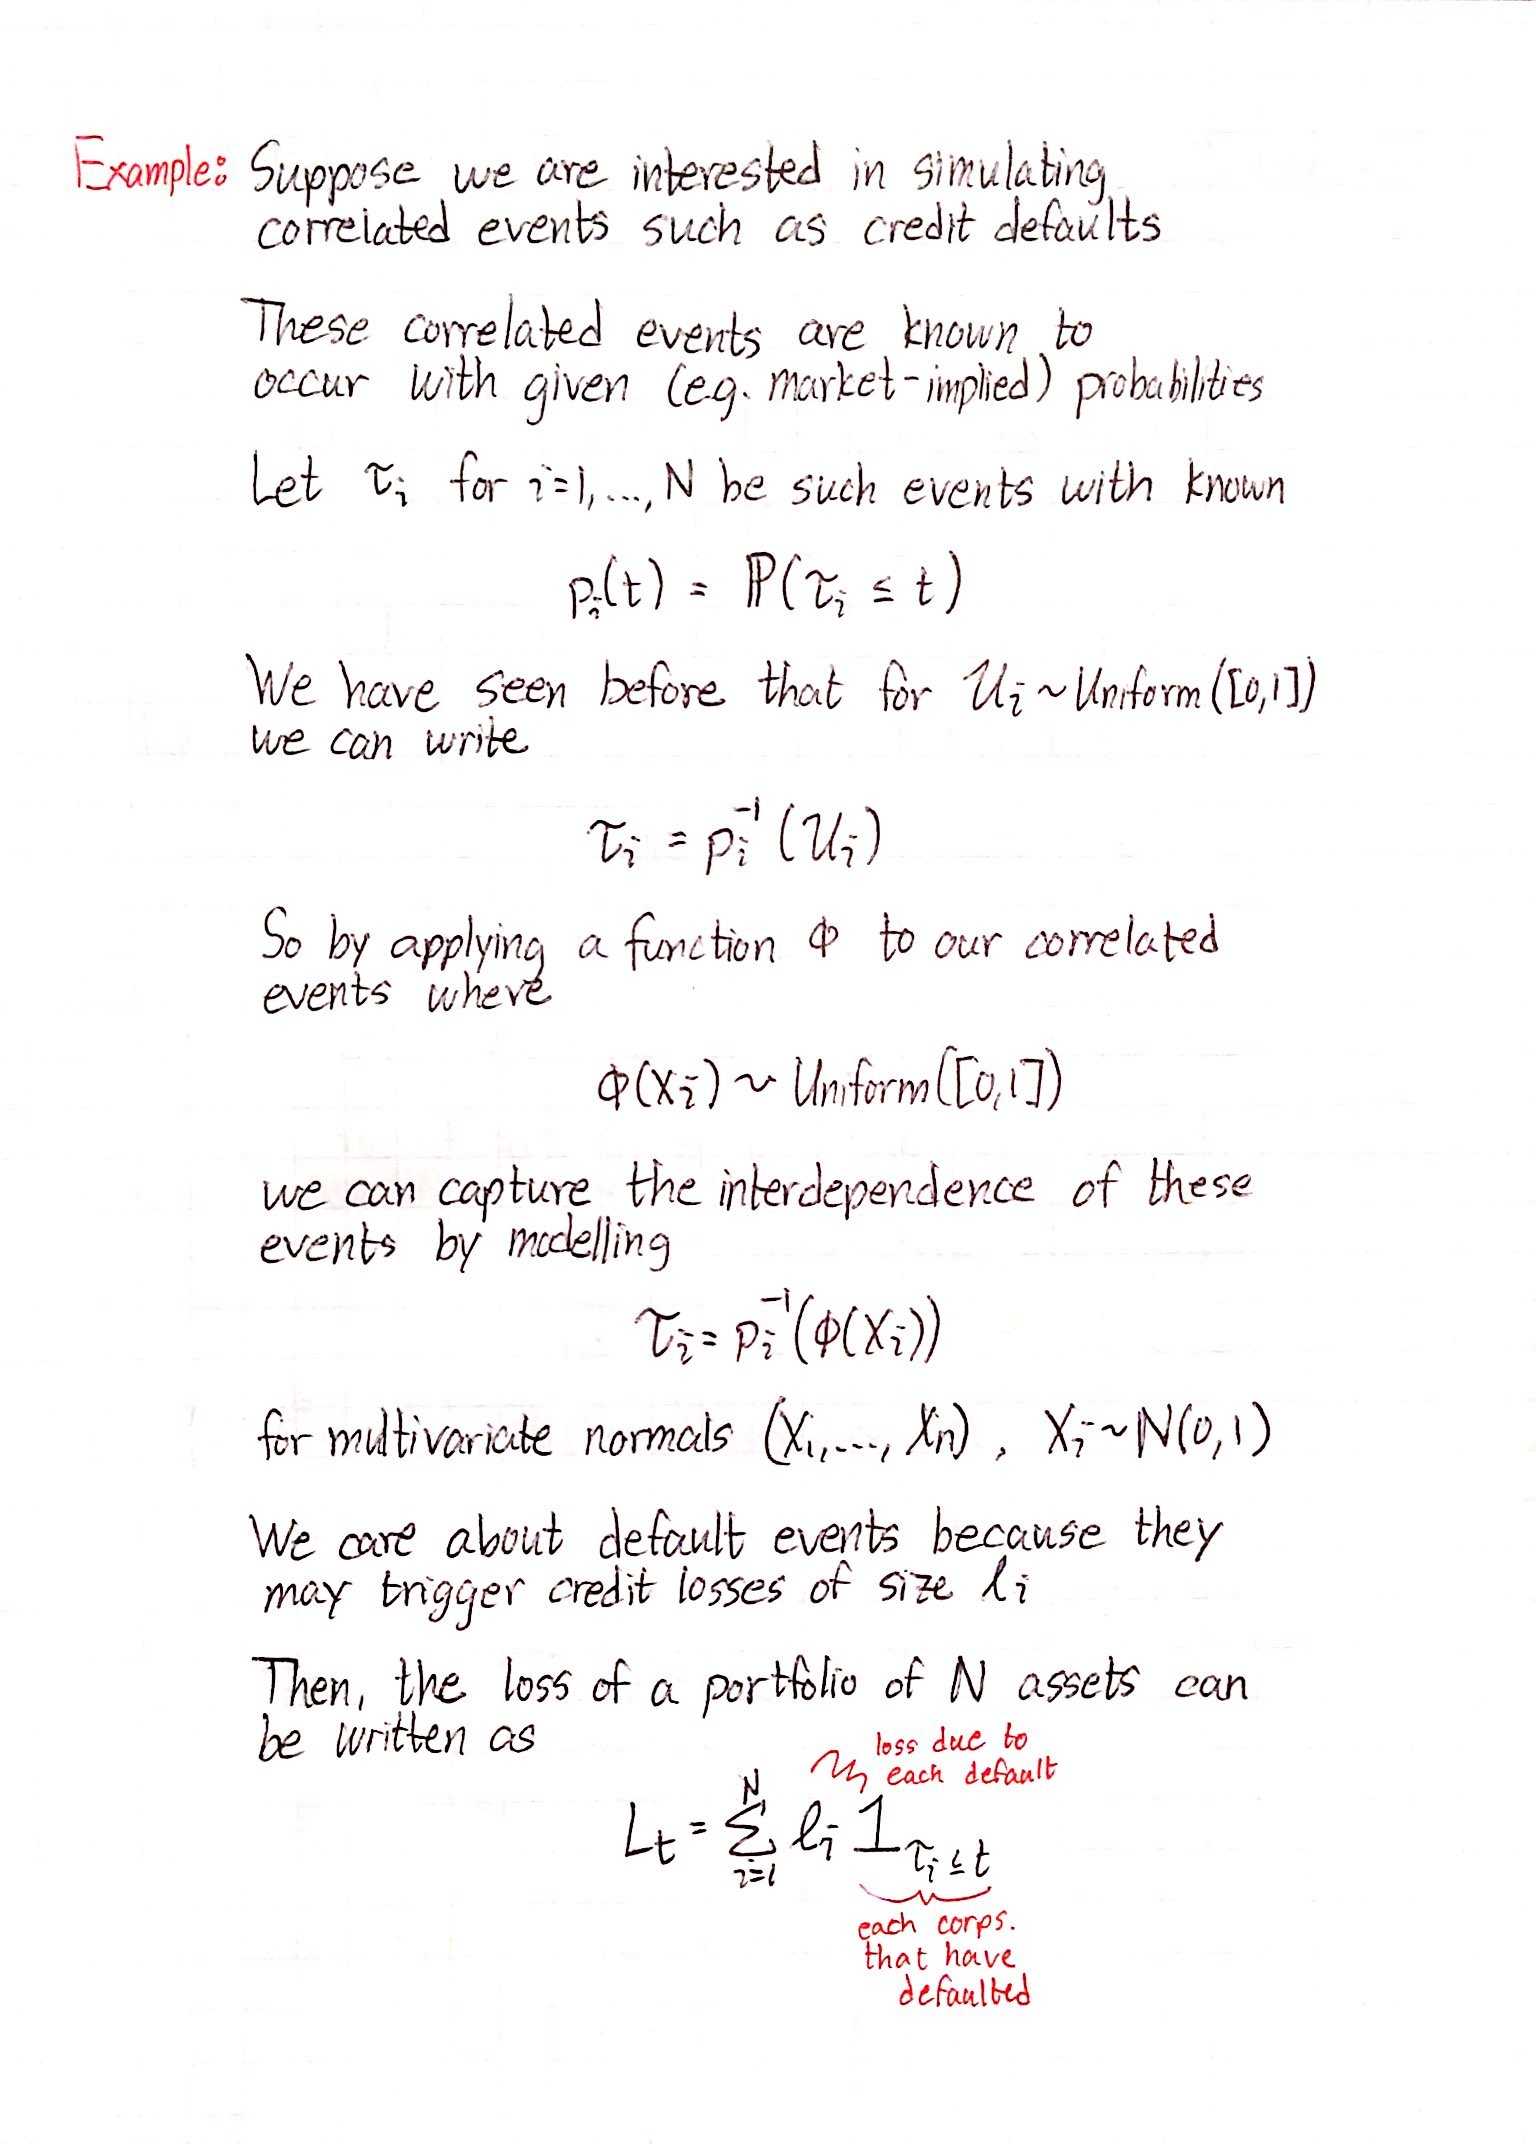 Example: Suppose we are interested in simulating
correlated events such as credit defaults
These correlated events are known to
occur with given (e.g. market-implied) probabilities
Let τᵢ for i=1,...,N be such events with known
pᵢ(t) = ℙ(τᵢ ≤ t)
We have seen before that for Uᵢ ~ Uniform([0,1])
we can write
τᵢ = pᵢ⁻¹(Uᵢ)
So by applying a function Φ to our correlated
events where
Φ(Xᵢ) ~ Uniform([0,1])
we can capture the interdependence of these
events by modelling
τᵢ = pᵢ⁻¹(Φ(Xᵢ))
for multivariate normals (X₁,...,Xₙ), Xᵢ ~ N(0,1)
We care about default events because they
may trigger credit losses of size lᵢ
Then, the loss of a portfolio of N assets can
be written as
loss due to
each default
L_t = ∑_{i=1}^{N} lᵢ 1_{τᵢ ≤ t}
each corps.
that have
defaulted